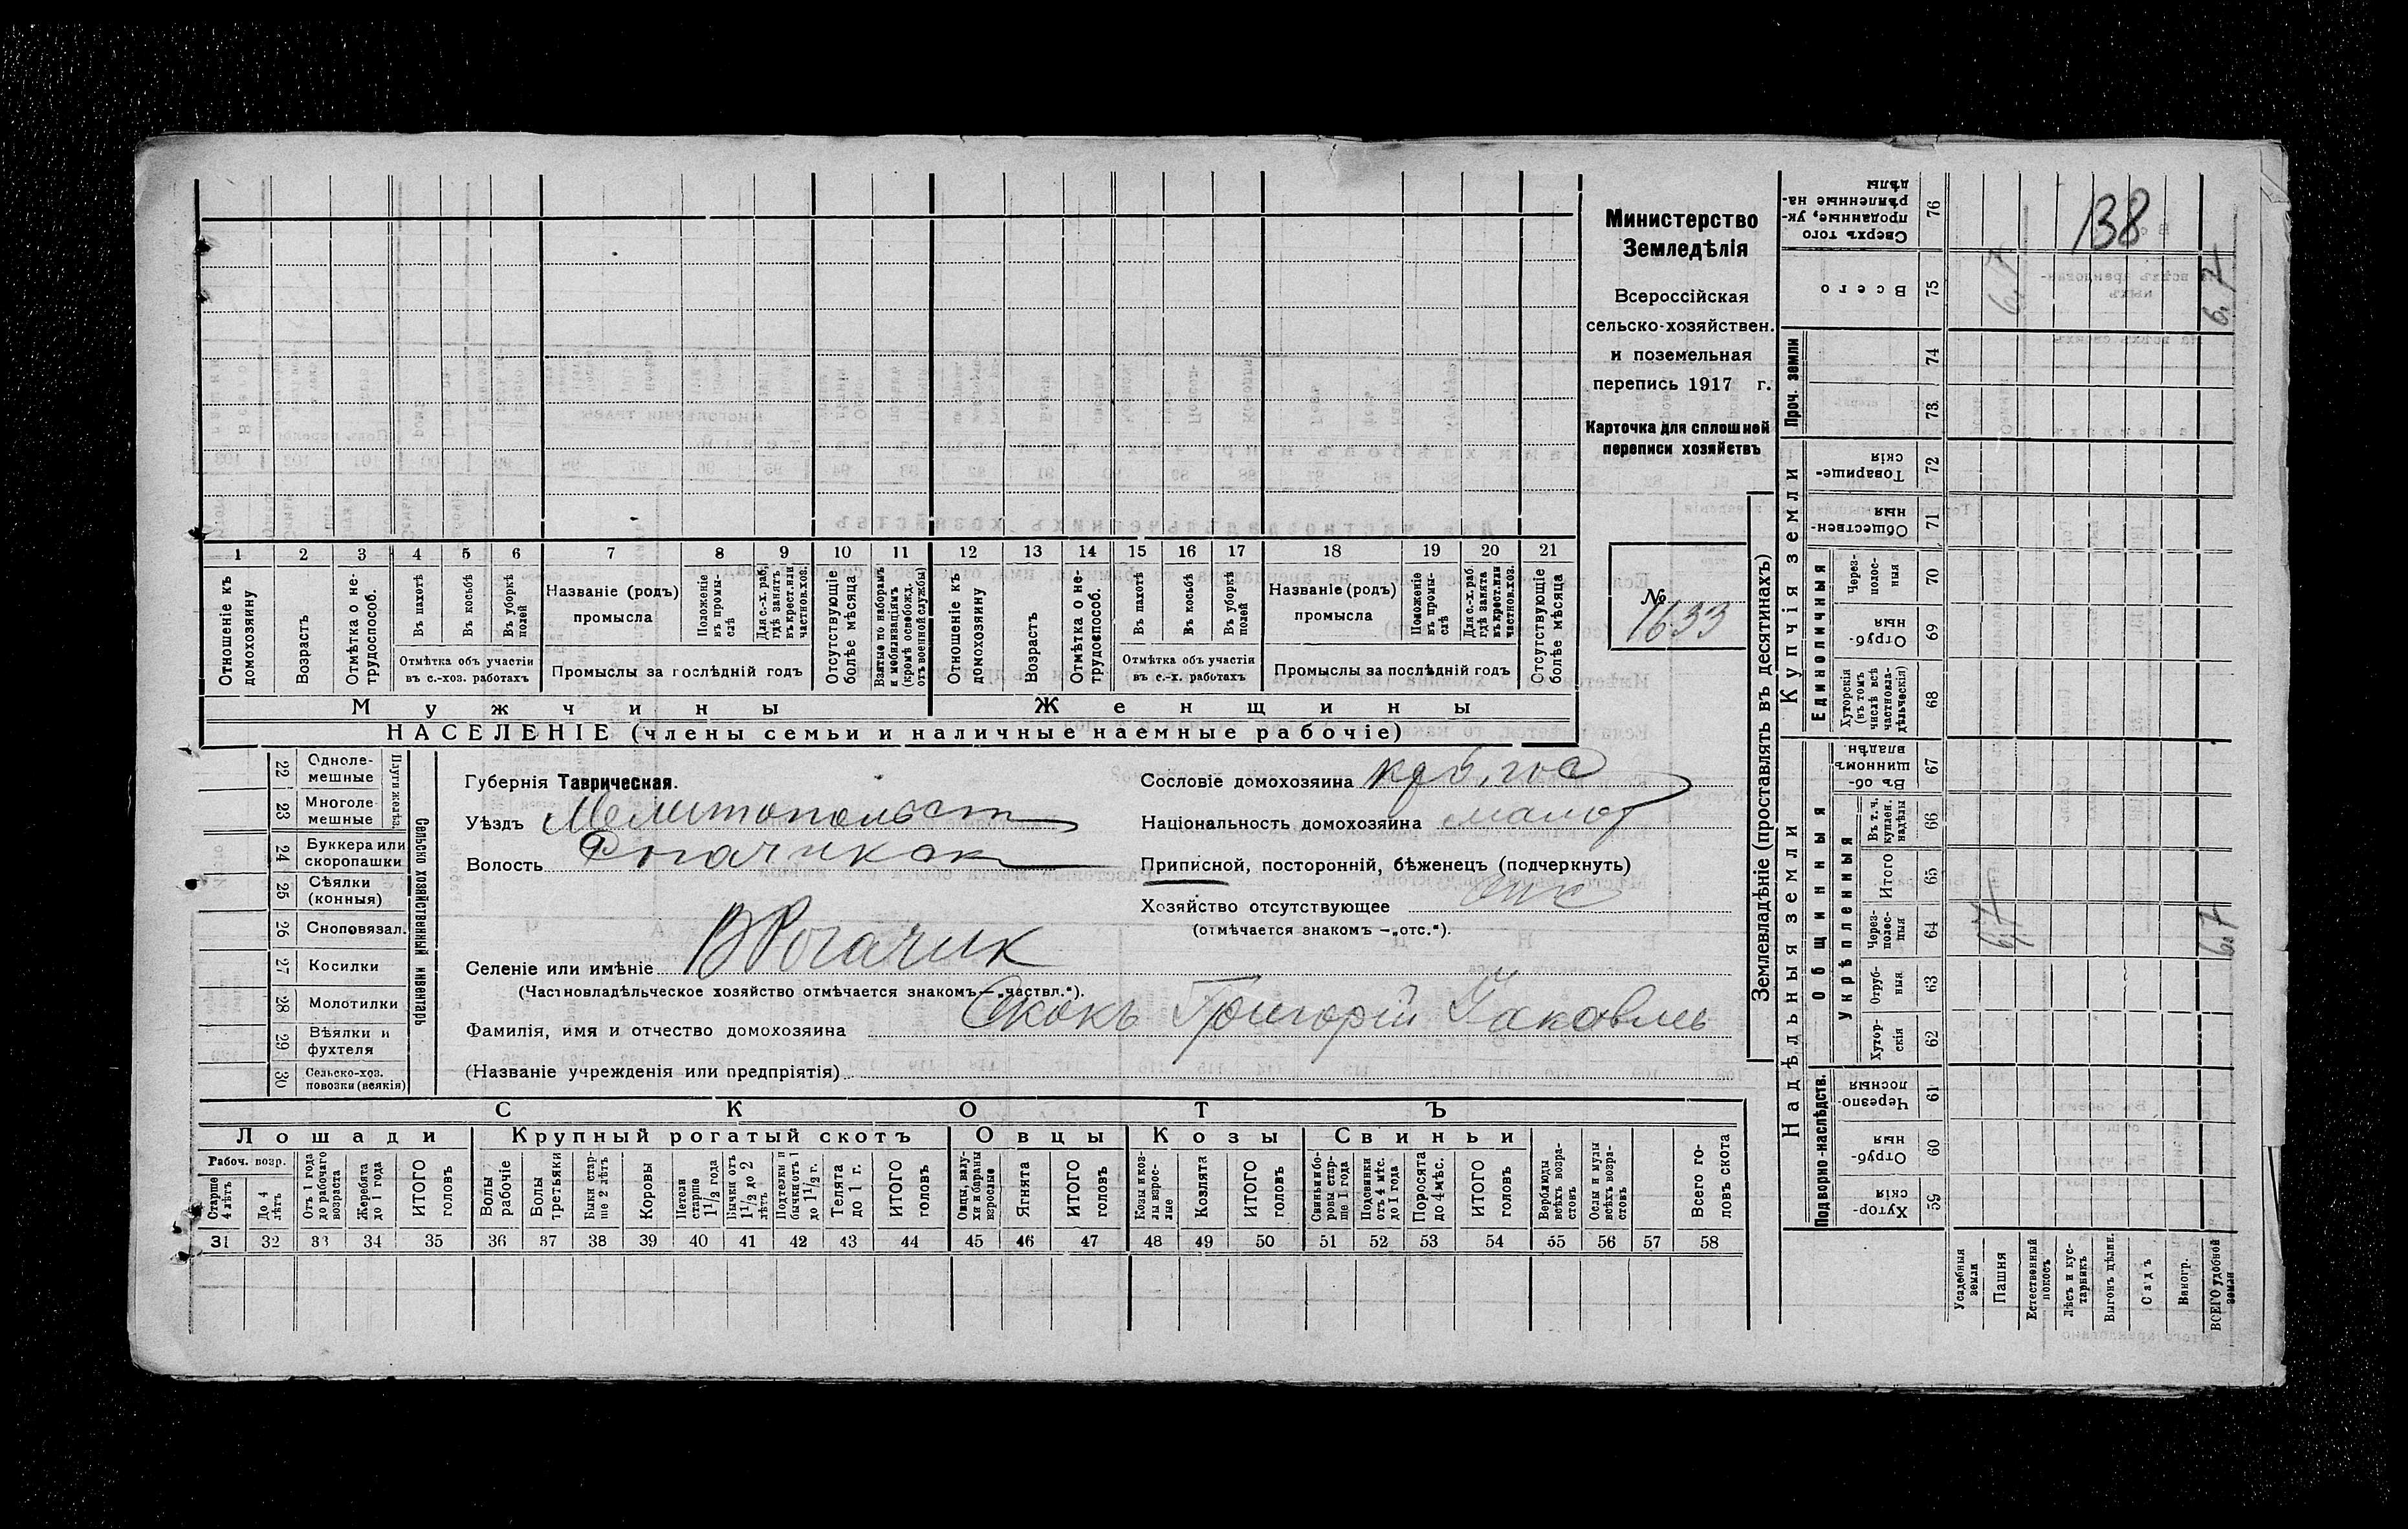 138
Министерство
Земледѣлія
Всероссійская
сельско-хозяйствен.
и поземельная
перепись 1917 г.
Карточка для сплошной
переписи хозяйствъ
№
1633
1 2 3 4 5 6 7 8 9 10 11 12 13 14 15 16 17 18 19 20 21
Отношеніе къ домохозяину
Возрастъ
Отмѣтка о не-трудоспособ.
Въ пахотѣ
Въ косьбѣ
Въ уборкѣ полей
Отмѣтка объ участіи
въ с.-хоз. работахъ
Названіе (родъ)
промысла
Положеніе въ промы-слѣ
Для с.-х. раб. гдѣ занятъ въ крест. или частнов. хоз.
Промыслы за послѣдній годъ
Отсутствующіе болѣе мѣсяца
Взятые по наборамъ и мобилизаціямъ (кромѣ освобожд. отъ военной службы)
Отношеніе къ домохозяину
Возрастъ
Отмѣтка о не-трудоспособ.
Въ пахотѣ
Въ косьбѣ
Въ уборкѣ полей
Отмѣтка объ участіи
въ с.-х. работахъ
Названіе (родъ)
промысла
Положеніе въ промы-слѣ
Для с.-х. раб. гдѣ занята въ крест. или частнов. хоз.
Промыслы за послѣдній годъ
Отсутствующіе болѣе мѣсяца
Мужчины Женщины
НАСЕЛЕНІЕ (члены семьи и наличные наемные рабочіе)
Сельско хозяйственный инвентарь
Плуги желѣз.
22 Одноле-мешные
23 Многоле мешные
24 Буккера или скоропашки
25 Сѣялки (конныя)
26 Сноповязал.
27 Косилки
28 Молотилки
29 Вѣялки и фухтеля
30 Сельско-хоз. повозки (всякія)
Губернія Таврическая.
Уѣздъ Мелитопольск
Волость
Селеніе или имѣніе В Рогачик
(Частновладѣльческое хозяйство отмѣчается знакомъ—„частвл.“).
Фамилія, имя и отчество домохозяина Скокъ Григорій Яковлъ
(Названіе учрежденія или предпріятія)
Сословіе домохозяина
Національность домохозяина малор
Приписной, посторонній, бѣженецъ (подчеркнуть)
Хозяйство отсутствующее отс
(отмѣчается знакомъ —„отс.“).
СКОТЪ
Лошади Крупный рогатый скотъ Овцы Козы Свиньи
Рабоч. возр.
Старше 4 лѣтъ
До 4 лѣтъ
Отъ 1 года до рабочаго возраста
Жеребята до 1 года
ИТОГО головъ
Волы рабочіе
Волы третьяки
Быки стар-ше 2 лѣтъ
Коровы
Нетели старше 1 1/2 года
Бычки отъ 1 1/2 до 2 лѣтъ
Подтелки и бычки отъ 1 до 1 1/2 г.
Телята до 1 г.
ИТОГО головъ
Овцы, валу-хи и бараны взрослые
Ягнята
ИТОГО головъ
Козы и коз-лы взрос-лые
Козлята
ИТОГО головъ
Свиньи и бо-ровы стар-ше 1 года
Подсвинки отъ 4 мѣс. до 1 года
Поросята до 4 мѣс.
ИТОГО головъ
Верблюды всѣхъ возра-стовъ
Ослы и мулы всѣхъ возра-стовъ
Всего го-ловъ скота
31 32 33 34 35 36 37 38 39 40 41 42 43 44 45 46 47 48 49 50 51 52 53 54 55 56 57 58
Землевладѣніе (проставлять въ десятинахъ)
Надѣльныя земли
Купчія земли
Проч. земли
Подворно-наслѣдств.
Общинныя
Укрѣпленныя
Единоличныя
Хутор-скія 59
Отруб-ныя 60
Черезпо-лосныя 61
Хутор-скія 62
Отруб-ныя 63
Через-полос-ныя 64
Итого 65
Въ т. ч. куплен. надѣлы 66
Въ об-щинномъ владѣн. 67
Хуторскія (въ томъ числѣ всѣ частновла-дѣльческія) 68
Отруб-ныя 69
Через-полос-ныя 70
Обществен-ныя 71
Товарище-скія 72
73
74
Всего 75
Сверхъ того проданные, ук-рѣпленные на-дѣлы 76
Усадебныя земли
Пашня
Естественный покосъ
Лѣсъ и кус-тарникъ
Выгонъ цѣлин.
Садъ
Виногр.
ВСЕГО удобной земли
6,7
6,7
6,7
6,7